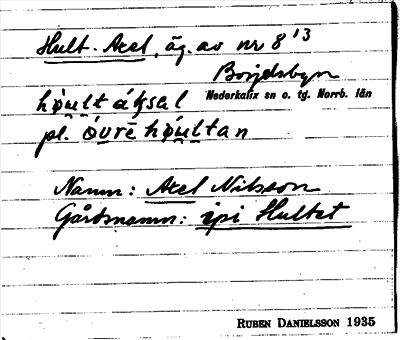 Hult-Axel, äg. av nr 8¹³
Börjelsbyn
Nederkalix sn o. tg. Norrb. län
pl.
Namn: Axel Nilsson
Gårdsnamn: ipi Hultet
RUBEN DANIELSSON 1935